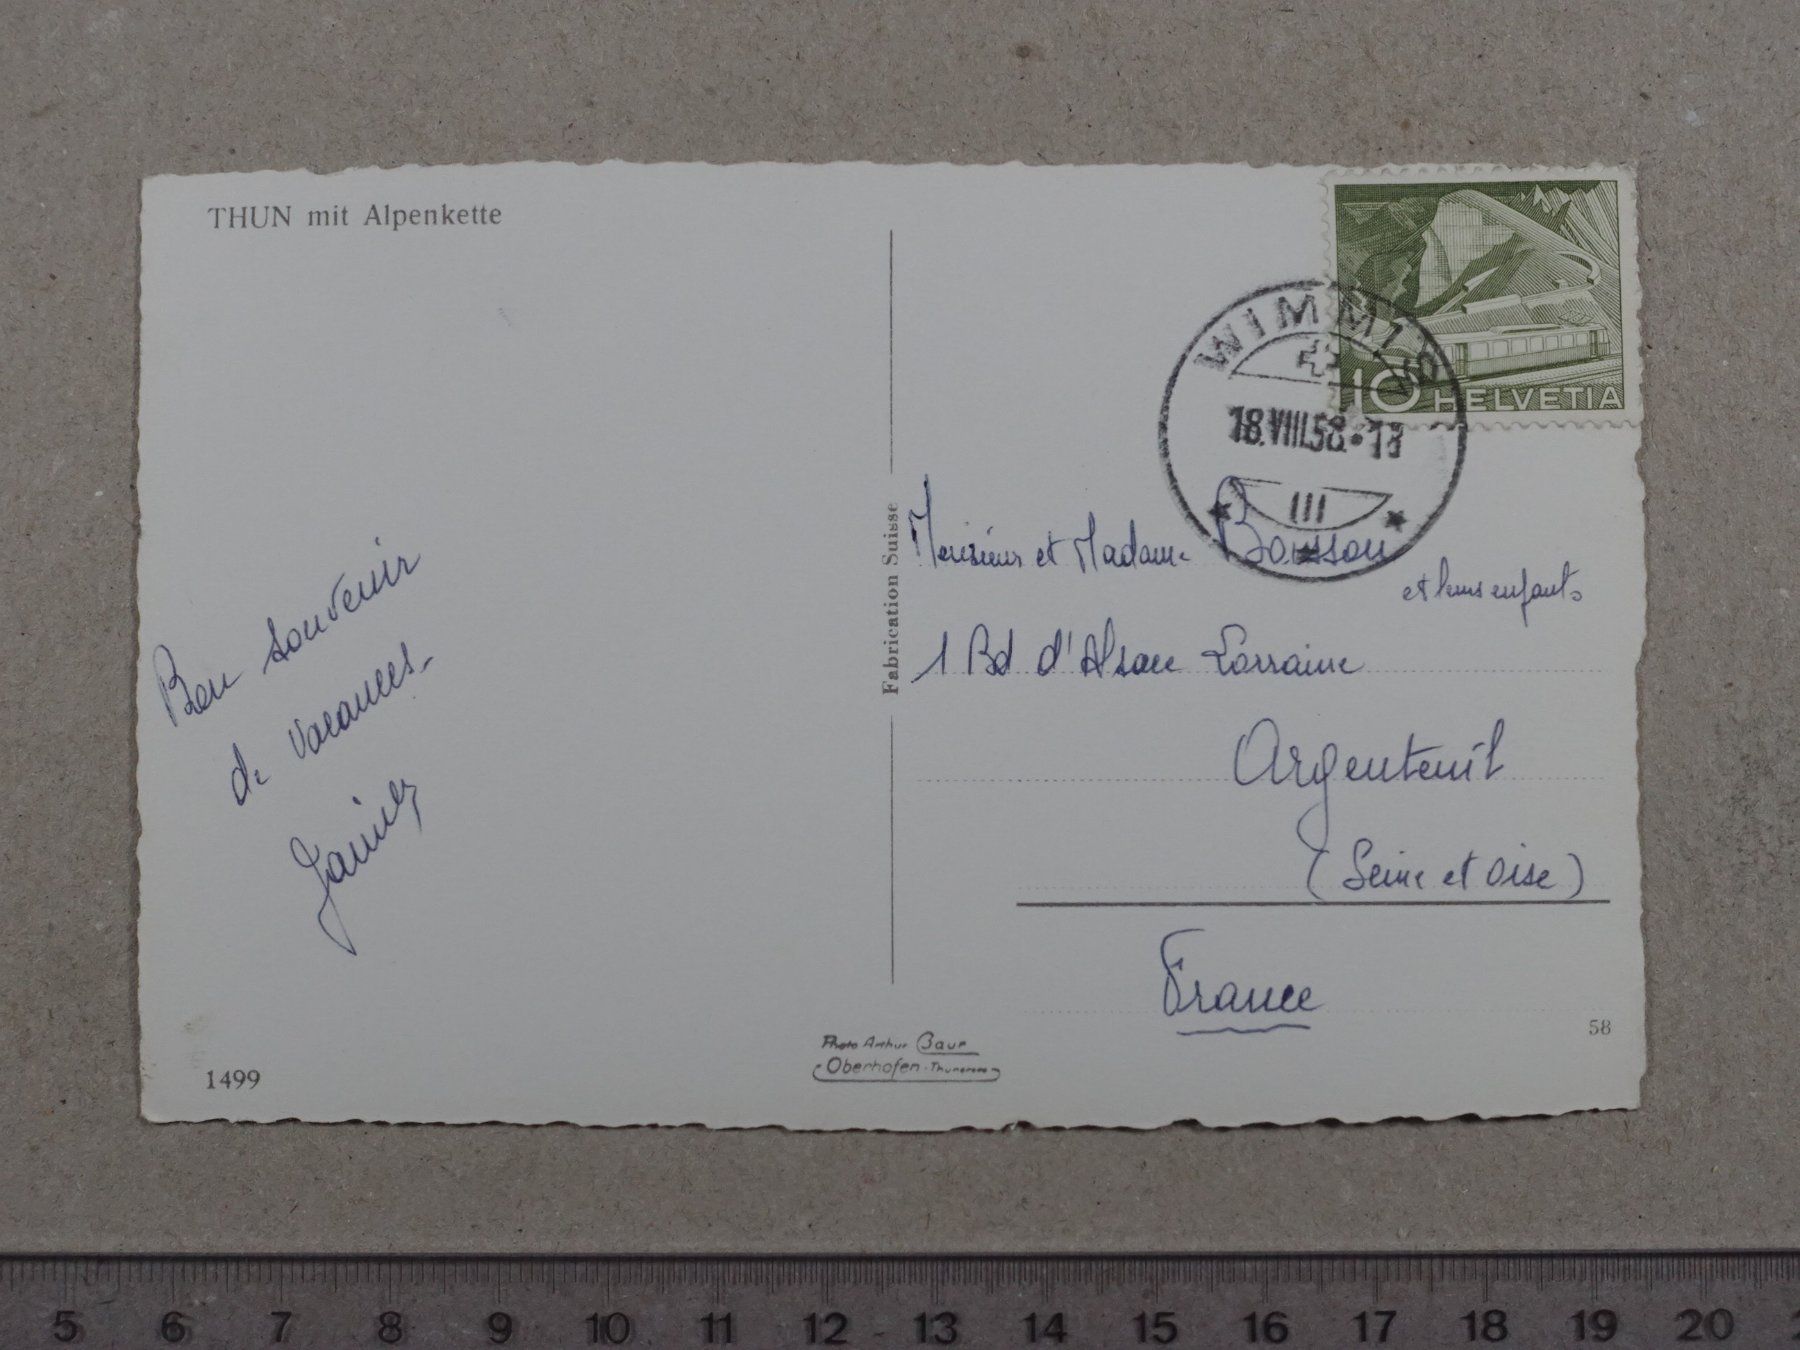 THUN mit Alpenkette
Bon souvenir
de vacances.
1499
Fabrication Suisse
Photo Arthur Baur
Oberhofen - Thunersee
10 HELVETIA
WIMMIS
18.VIII.58.
III
Monsieur et Madame
et leurs enfants
1 Bd d'Alsace Lorraine
Argenteuil
(Seine et Oise)
France
58
5 6 7 8 9 10 11 12 13 14 15 16 17 18 19 20